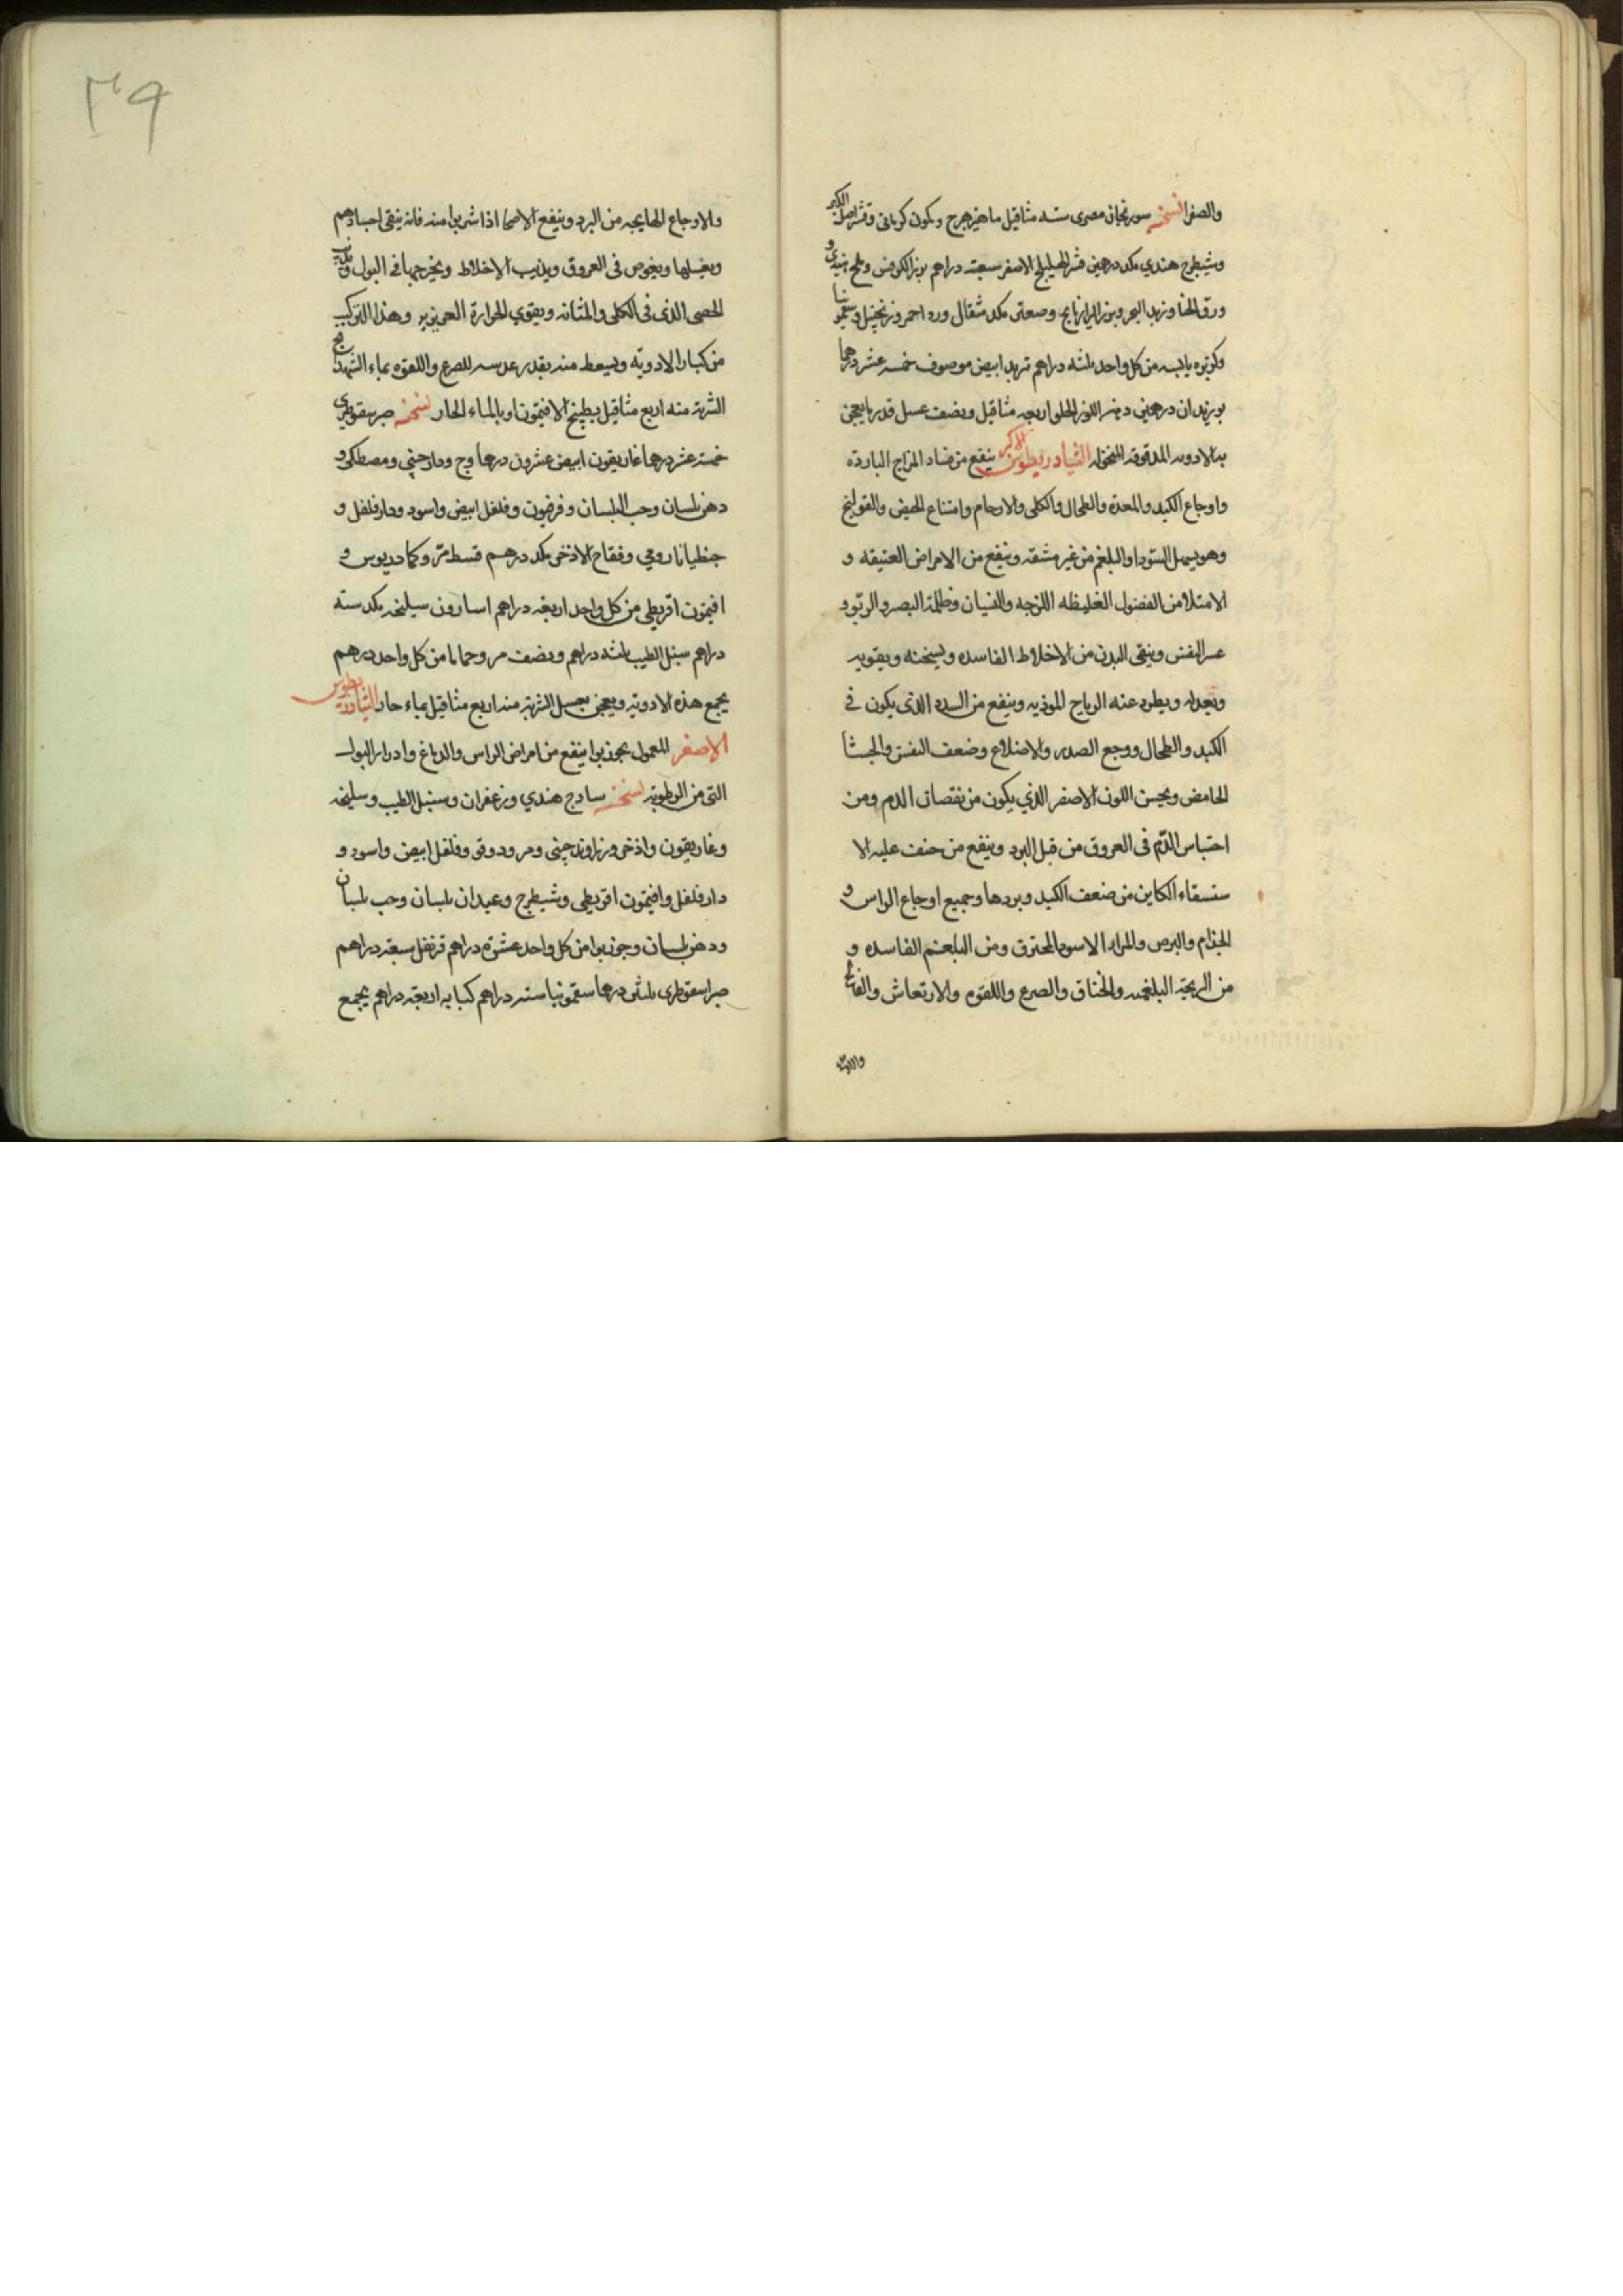 والصفرا نسخته سورنجان مصرى سته مثاقيل ماهيزهرج وكمون كرمانى وقشر اصل الكبر
وشيطرج هندي مكد درهمين قشر الهليلج الاصفر سبعة دراهم بزر الكرفس وملح هندى و
ورق الحنا وزبد البحر وبزر الرازيانج وصعتر مكد مثقال ورد احمر وزنجبيل وسقمونيا
وكزبره يابسه من كل واحد ثلثه دراهم تربد ابيض موصوف خمسه عشر درهما
بوزيدان درهمين دهن اللوز الحلو اربعه مثاقيل ونصف عسل قدر ما يعجن
به الادويه المدقوقه المنخوله الثيادريطوس الاكبر ينفع من فساد المزاج البارده
واوجاع الكبد والمعدة والطحال والكلى والارحام وامتناع الحيض والقولنج
وهو يسهل السودا والبلغم من غير مشقه وينفع من الامراض العتيقه و
الامتلا من الفضول الغليظه اللزجه والنسيان وظلمة البصر والربو و
عسر النفس وينقى البدن من الاخلاط الفاسده ويسخنه ويقويه
وتعدله ويطرد عنه الرياح الموذيه وينفع من السدد الذى يكون فى
الكبد والطحال ووجع الصدر والاضلاع وضعف النفس والجشا
الحامض ويحسن اللون الاصفر الذي يكون من نقصان الدم ومن
احتباس الدم فى العروق من قبل البرد وينفع من خفت عليه الا
ستسقاء الكاين من ضعف الكبد وبردها وجميع اوجاع الراس و
الجذام والبرص والمرار الاسود المحترق ومن البلغم الفاسده و
من الريحية البلغميه والخناق والصرع واللقوه والارتعاش والفالج
والاوجاع
والاوجاع الهايجه من البرد وينفع الاصحا اذا شربوا منه فانه ينقى اجسادهم
ويغسلها ويغوص فى العروق ويذيب الاخلاط ويخرجها فى البول ويذيب
الحصى الذى فى الكلى والمثانه ويقوي الحرارة الغريزيه وهذا التركيب
من كبار الادوية ويسعط منه بقدر عدسه للصرع واللقوه بماء الشهدانج
الشربة منه اربع مثاقيل بطبيخ الافيتمون او بالماء الحار نسخته صبر سقوطرى
خمسة عشر درهما غاريقون ابيض عشرون درهما وج ودارچينى ومصطكى و
دهن بلسان وحب البلسان وفرفيون وفلفل ابيض واسود ودار فلفل و
جنطيانا رومي وفقاح الاذخر مكد درهم قسط مر وكمادريوس و
افيتمون اقريطى من كل واحد اربعة دراهم اسارون سليخه مكد سته
دراهم سنبل الطيب ثلثه دراهم ونصف مر وحماما من كل واحد درهم
يجمع هذه الادوية ويعجن بعسل الشربة منه اربع مثاقيل بماء حار الثيادريطوس
الاصغر المعمول بجوزبوا ينفع من امراض الراس والدماغ وادرار البول
التى من الرطوبة نسخته سادج هندي وزعفران وسنبل الطيب وسليخه
وغاريقون واذخر وزراوند چينى ومر ودوقو وفلفل ابيض واسود و
دار فلفل وافيتمون اقريطى وشيطرج وعيدان بلسان وحب بلسان
ودهن بلسان وجوزبوا من كل واحد عشرة دراهم قرنفل سبعة دراهم
صبر اسقوطرى ثلثين درهما سقمونيا ستة دراهم كبابه اربعة دراهم يجمع